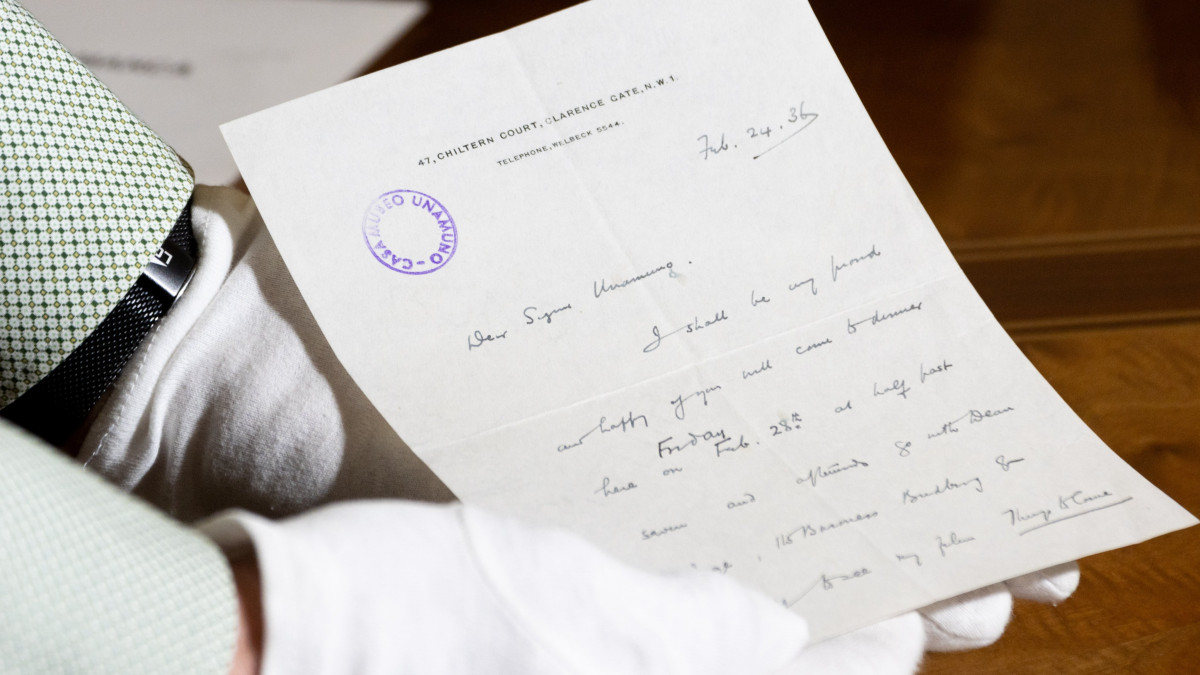 47, CHILTERN COURT, CLARENCE GATE, N.W.1.
TELEPHONE, WELBECK 5544.
Feb. 24. 36
CASA MUSEO UNAMUNO -
Dear Signor Unamuno.
I shall be very proud
and happy if you will come to dinner
Friday
here on Feb. 28th at half past
seven and afterwards go with Dean
Baroness Budberg &
to see my film Things to Come